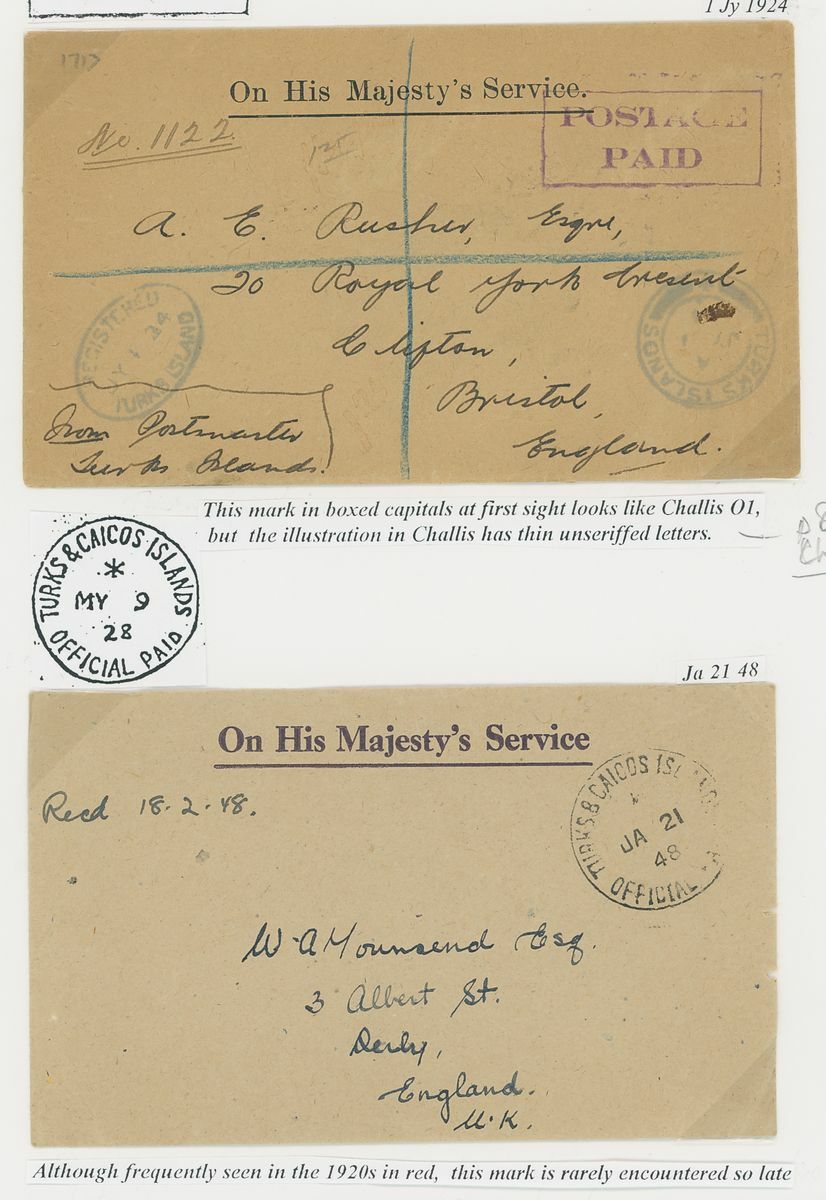 1 Jy 1924
1717
On His Majesty's Service.
POSTAGE
PAID
No. 1122
1st
A. E. Rusher, Esqre,
20 Royal York Cresent
Clifton,
Bristol,
England.
REGISTERED
JY 1 24
TURKS ISLAND
TURKS ISLANDS
From Postmaster
Turks Islands.
This mark in boxed capitals at first sight looks like Challis O1,
but the illustration in Challis has thin unseriffed letters.
TURKS & CAICOS ISLANDS
*
MY 9
28
OFFICIAL PAID
Ja 21 48
On His Majesty's Service
Recd 18.2.48.
TURKS & CAICOS ISL
JA 21
48
OFFICIAL
W. A Townsend Esq.
3 Albert St.
Derby,
England.
U.K.
Although frequently seen in the 1920s in red, this mark is rarely encountered so late